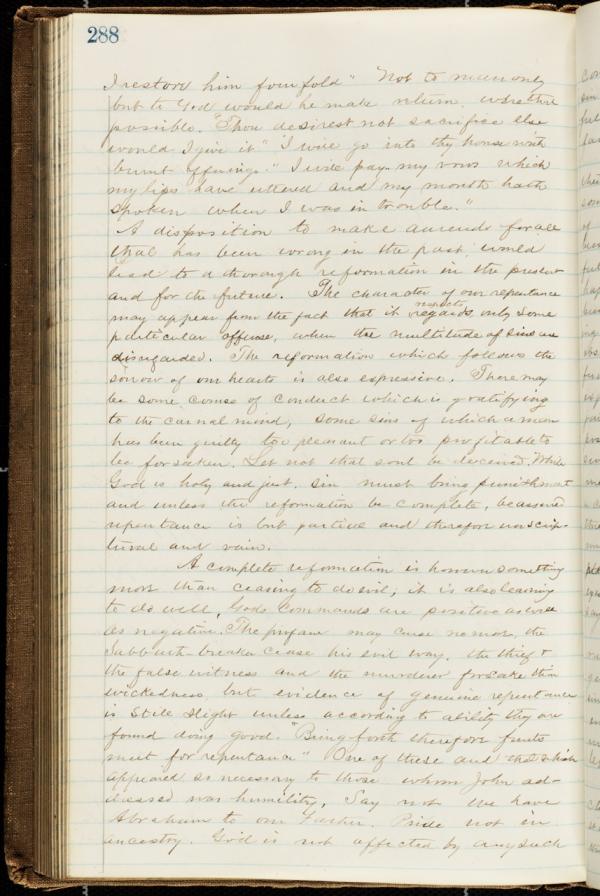 288
I restore him four fold" Not to man only
but to God would he make return, where
possible. "Thou desirest not sacrifice else
would I give it" I will go into thy house with
burnt offerings." I will pay my vows which
my lips have uttered and my mouth hath
spoken when I was in trouble."
A disposition to make amends for all
that has been wrong in the past would
lead to a thorough reformation in the present
and for the future. The character of our repentance
respects
may appear from the fact that it regards only some
particular offense, when the multitude of sins are
disregarded. The reformation which follows the
sorrow of our hearts is also expressive. There may
be some course of conduct which is gratifying
to the carnal mind, some sins of which a man
has been guilty too pleasant or too profitable to
be forsaken. Let not that soul be deceived. While
God is holy and just, sin must bring punishment
and unless the reformation be complete, be assured
repentance is but partial and therefore unscrip-
tural and vain.
A complete reformation is however something
more than ceasing to do evil; it is also learning
to do well, Gods commands are positive as well
as negative. The profane may curse no more, the
Sabbath-breaker cease his evil way, the thief &
the false witness and the murderer forsake their
wickedness, but evidence of genuine repentance
is still slight unless according to ability they are
found doing good. "Bring forth therefore fruits
meet for repentance" One of these and that which
appeared as necessary to those whom John ad-
dressed was humility, Say not we have
Abraham to our Father. Pride not in
ancestry. God is not affected by any such